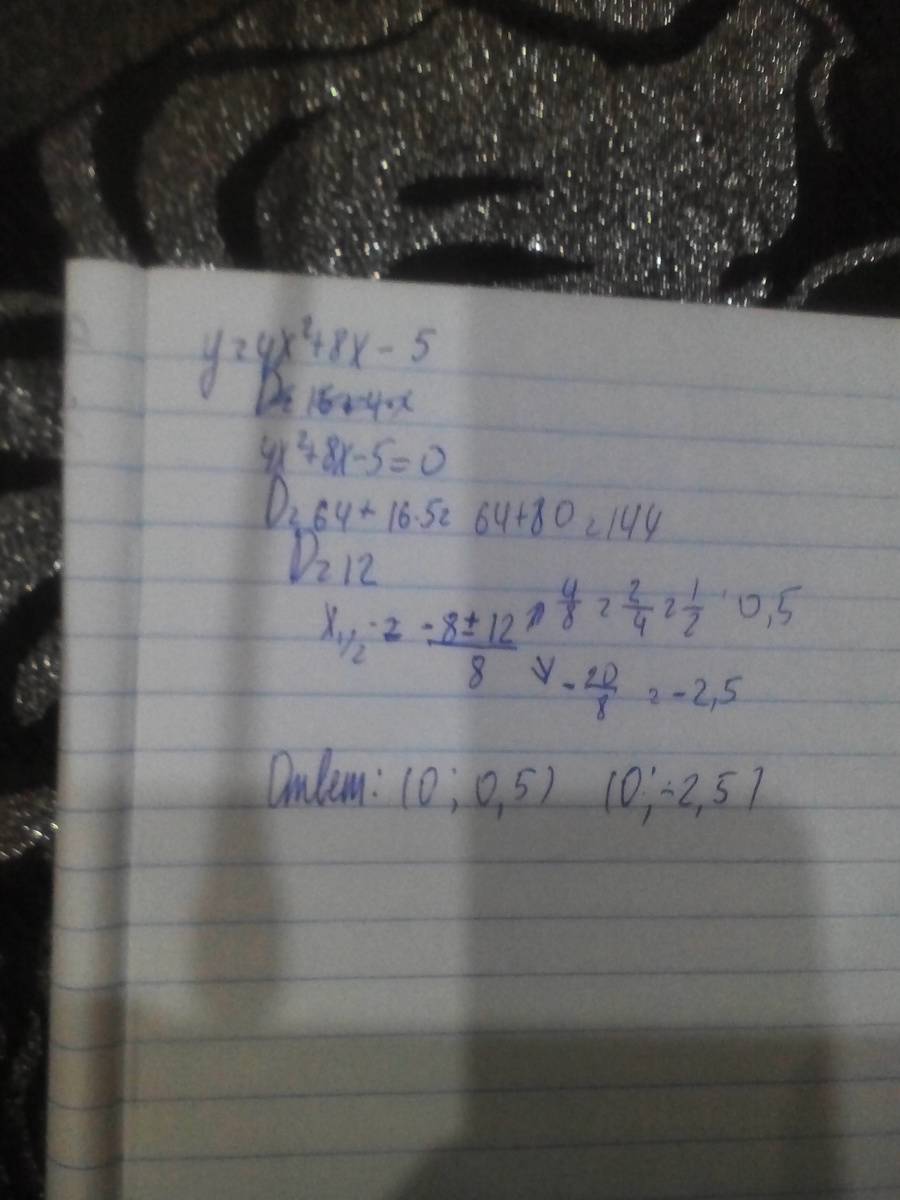 y = 4x²+8x - 5
4x²+8x-5=0
D= 64 + 16·5= 64+80 =144
D= 12
x₁/₂ = -8±12 / 8 ↗ 4/8 = 2/4 = 1/2 0,5
↘ -20/8 = -2,5
Ответ: (0; 0,5) (0; -2,5)